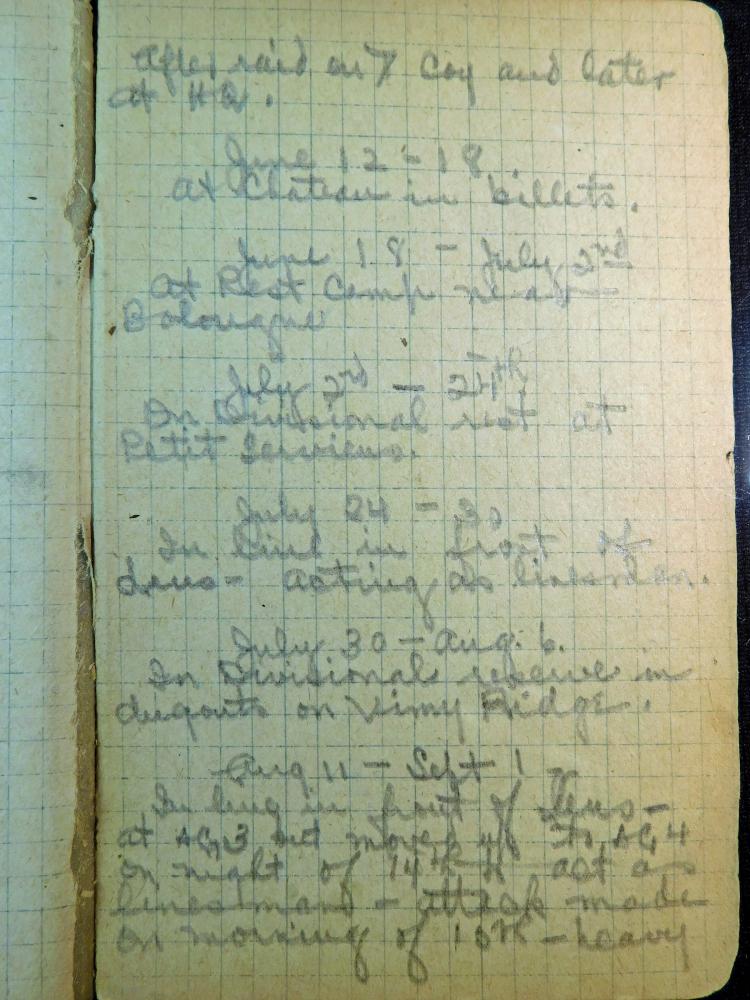 After raid on 7 Coy and later
at HQ.
June 12 - 18
At Chateau in billets.
June 18 - July 2nd
At Rest Camp near
Bolougne
July 2nd - 24th
In Divisional rest at
Petit Serviens.
July 24 - 30
In line in front of
Lens - acting as linesman.
July 30 - Aug. 6.
In Divisional reserve in
dugouts on Vimy Ridge.
Aug 11 - Sept 1
In line in front of Lens -
at AG 3 but moved up to AG 4
on night of 14th to act as
linesman - attack made
on morning of 15th - heavy